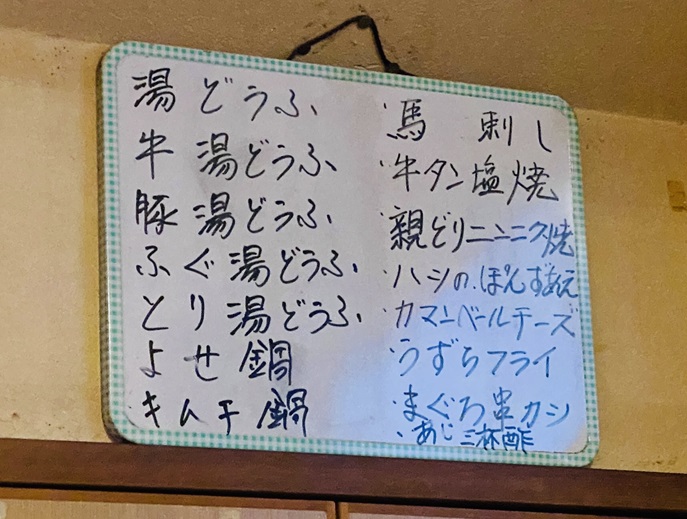 湯どうふ
牛湯どうふ
豚湯どうふ
ふぐ湯どうふ
とり湯どうふ
よせ鍋
キムチ鍋
・馬刺し
・牛タン塩焼
・親どりニンニク焼
・ハシの.ぽんずあえ
・カマンベールチーズ
・うずらフライ
・まぐろ串カシ
・あじ三杯酢